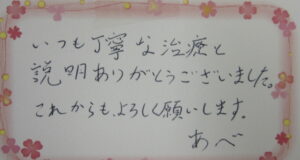 いつも丁寧な治療と
説明ありがとうございました。
これからも、よろしく願いします。
あべ